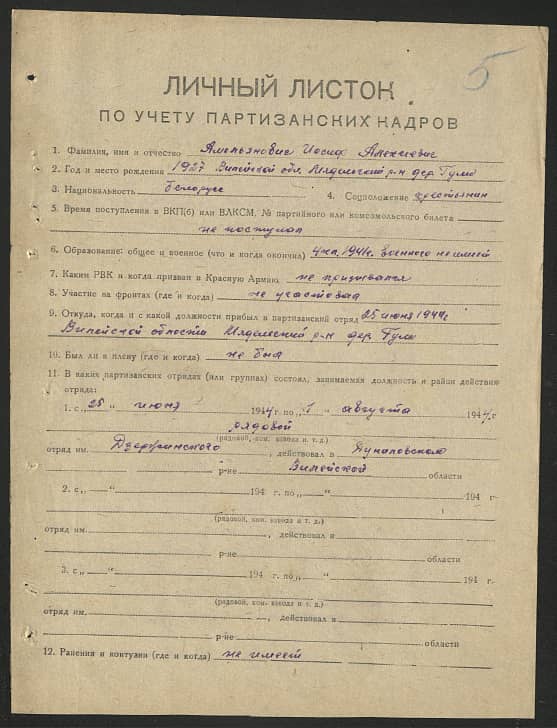 5
ЛИЧНЫЙ ЛИСТОК
ПО УЧЕТУ ПАРТИЗАНСКИХ КАДРОВ
1. Фамилия, имя и отчество Амельянович Иосиф Алексеевич
2. Год и место рождения 1927 Вилейской обл. Мядельский р-н дер. Гули
3. Национальность белорус 4. Соцположение крестьянин
5. Время поступления в ВКП(б) или ВЛКСМ, № партийного или комсомольского билета
не поступал
6. Образование: общее и военное (что и когда окончил) 4 кл. 1941г. военного не имеет
7. Каким РВК и когда призван в Красную Армию не призывался
8. Участие на фронтах (где и когда) не участвовал
9. Откуда, когда и с какой должности прибыл в партизанский отряд 25 июня 1944г
Вилейской области Мядельский р-н дер. Гули
10. Был ли в плену (где и когда) не был
11. В каких партизанских отрядах (или группах) состоял, занимаемая должность и район действию
отряда:
1. с „25 “ июня 1944 г. по „1 “ августа 1944 г.
рядовой
(рядовой, ком. взвода и т. д.)
отряд им. Дзержинского, действовал в
р-не Вилейской области
2. с „ “ 194 г. по „ “ 194 г.
(рядовой, ком. взвода и т. д.)
отряд им. , действовал в
р-не области
3. с „ “ 194 г. по „ “ 194 г.
(рядовой, ком. взвода и т. д.)
отряд им. , действовал в
р-не области
12. Ранения и контузии (где и когда) не имеет